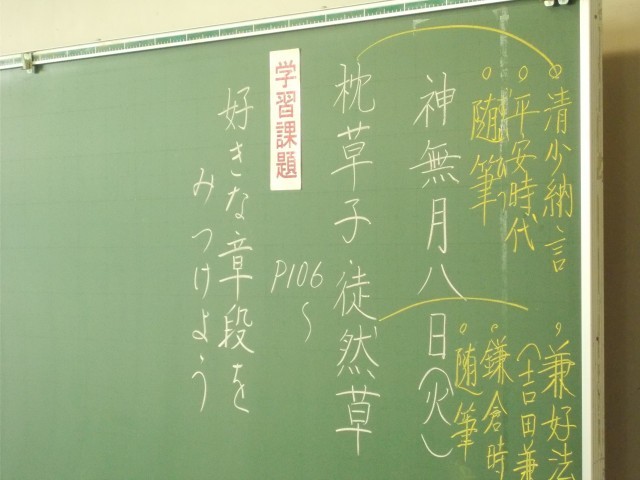 清少納言
平安時代
随筆
兼好法
(吉田兼
鎌倉時
随筆
神無月八日(火)
枕草子・徒然草
P106～
学習課題
好きな章段を
みつけよう